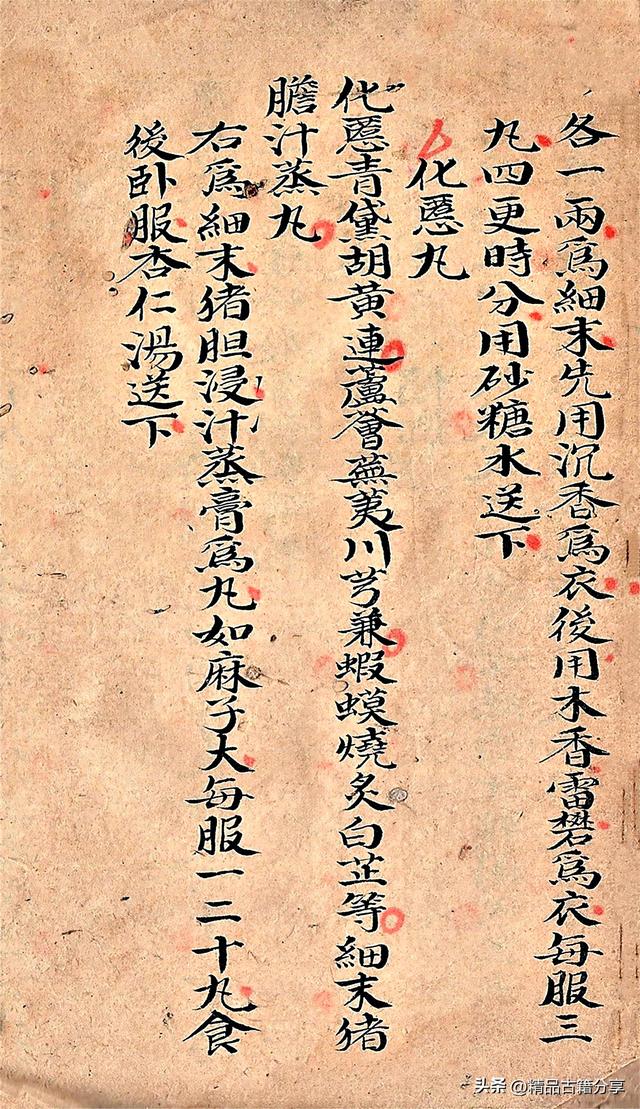 各一兩爲細末先用沉香爲衣後用木香雷礬爲衣每服三
丸四更時分用砂糖水送下
化䘌丸
化䘌青黛胡黄連蘆薈蕪荑川芎兼蝦蟆燒炙白芷等細末猪
膽汁蒸丸
右爲細末猪胆浸汁蒸膏爲丸如麻子大每服一二十丸食
後卧服杏仁湯送下
头条 @精品古籍分享